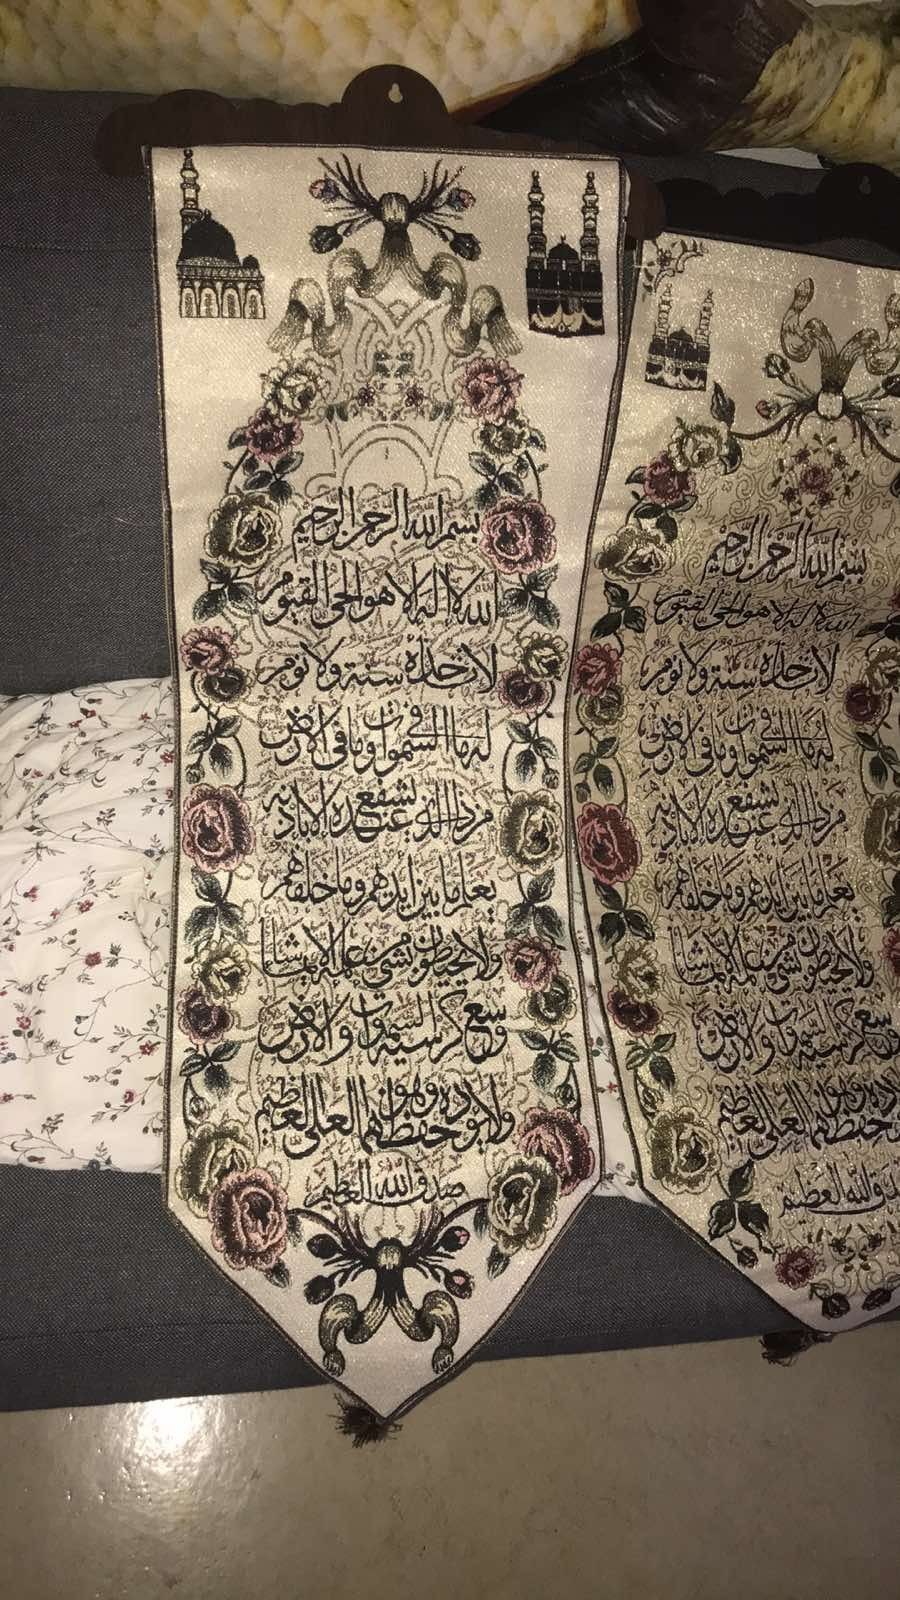 بسم الله الرحمن الرحيم
الله لا إله إلا هو الحي القيوم
لا تأخذه سنة ولا نوم
له ما في السموات وما في الأرض
من ذا الذي يشفع عنده إلا بإذنه
يعلم ما بين أيديهم وما خلفهم
ولا يحيطون بشيء من علمه إلا بما شاء
وسع كرسيه السموات والأرض
ولا يؤده حفظهما وهو العلي العظيم
صدق الله العظيم
بِسْمِ اللَّهِ الرَّحْمَنِ الرَّحِيمِ
الله لا إله إلا هو الحي القيوم
لا تأخذه سنة ولا نوم
له ما في السموات وما في الأرض
من ذا الذي يشفع عنده إلا بإذنه
يعلم ما بين أيديهم وما خلفهم
ولا يحيطون بشيء من علمه إلا بما شاء
وسع كرسيه السموات والأرض
حفظهما وهو العلي العظيم
صدق الله العظيم